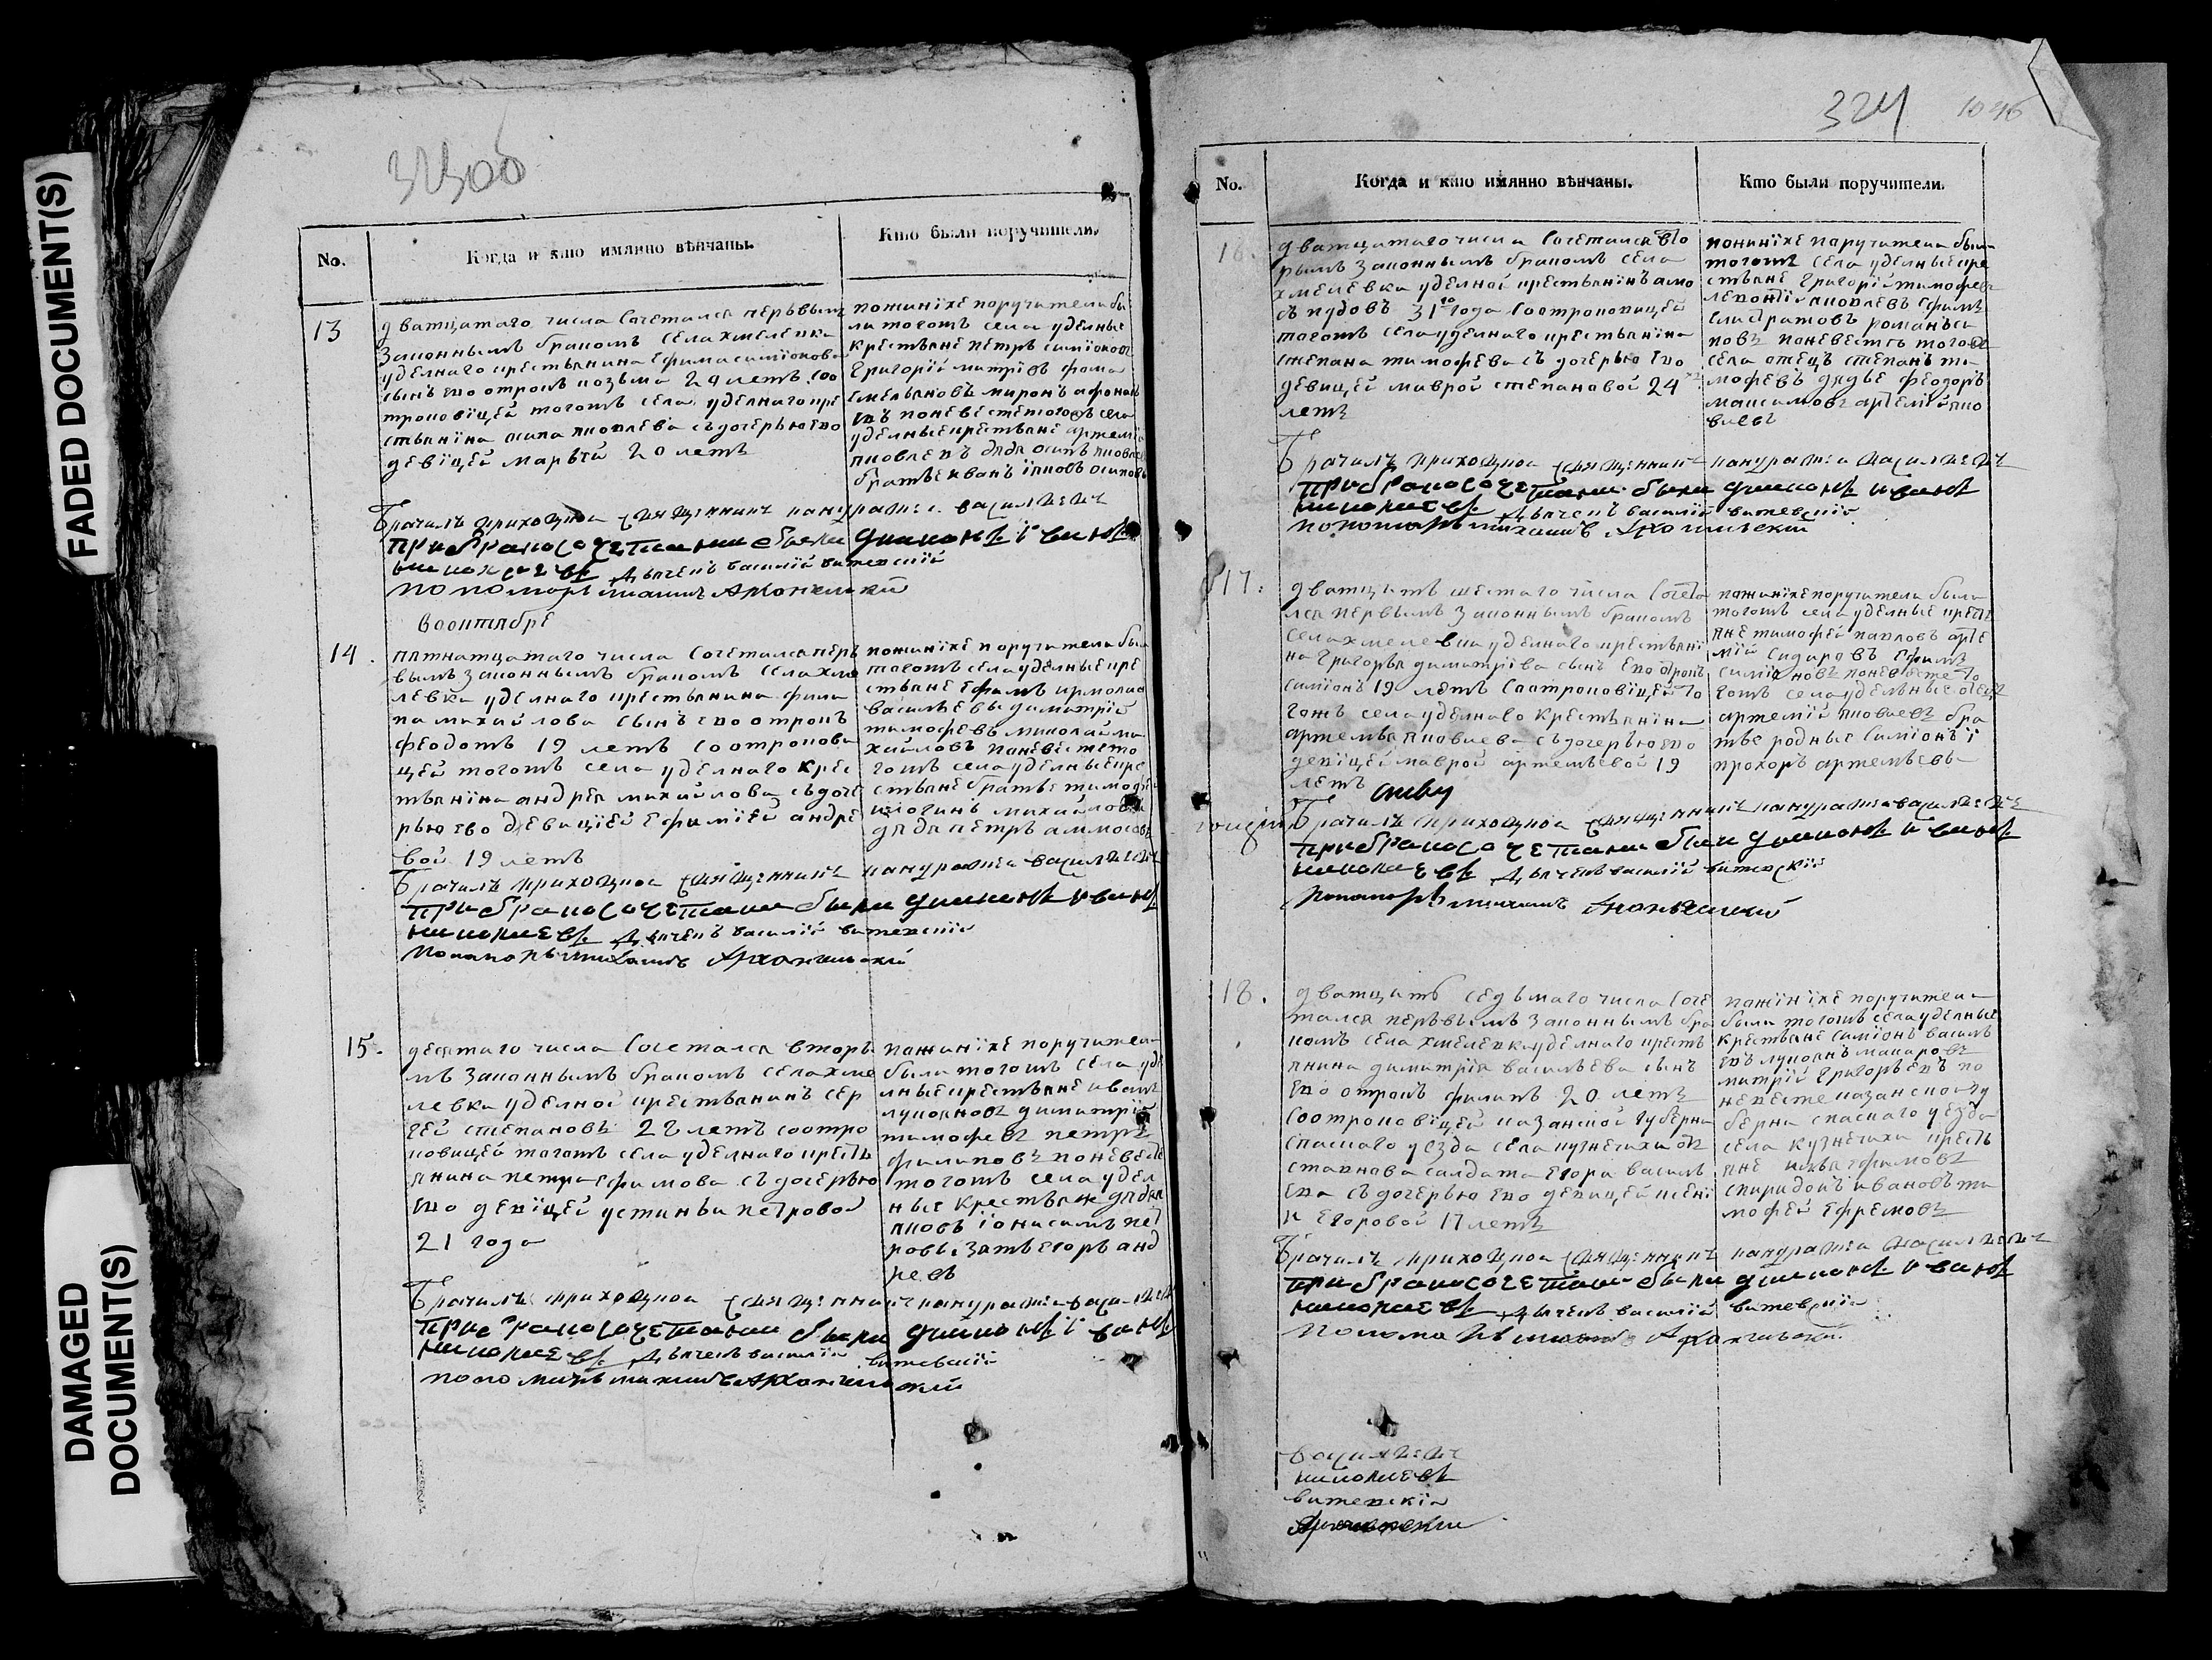 FADED DOCUMENT(S)
DAMAGED
DOCUMENT(S)
323об
No.
Когда и кто имянно вѣнчаны.
Кто были поручители.
13
дватцатаго числа Сочетался перьвымъ
Законнымъ бракомъ Села хмелевка
удѣлнаго крестьянина Ефима симіонова
сынъ ево отрокъ козьма 20 летъ соо
троковицей тогожъ села удѣлнаго кре
стьянина осипа яковлева съдочерью ево
девіцей марьѣй 20 летъ
пожинїхе поручители бы
ли тогожъ села удѣлные
крестьяне петръ симіонов
Григорій митрїев фома
Емельяновъ миронъ афонас
евъ поневестетогожъ села
удѣлныекрестьяне артемїй
яковлевъ дядя осипъ яковлев
братья иванъ їяковъ осиповы
Брачилъ приходской священникъ кандратей василиевич
при бракосочетании были диакон иван
николаев дьячекъ василій витевскій
пономарь михаилъ Архангельский
воонтябре
14.
пятнатцатаго числа сочеталсяперь
вымъ законнымъ бракомъ села хме
левка удѣлнаго крестьянина фили
па михайлова сынъ ево отрокъ
феодотъ 19 летъ соотрокови
цей тогожъ села удѣлнаго крес
тьянина андрея михайлова съдоче
рью ево дѣвицїей ефимїей андрѣ
вой 19 летъ
пожинїхе поручители бы
тогожъ села удѣлные кре
стьяне ефимъ ирмолай
васильевы димитрїй
тимофѣевъ николай ми
хайловъ поневестето
гожъ села удѣлныекре
стьяне братья тимофей
илогинъ михайловы
дядя петръ аммосовъ
Брачилъ приходской священникъ кандратей василиевич
при бракосочетании были диакон иван
николаев дьячекъ василій витевскій
пономарь михаилъ Архангельский
15.
десятаго числа сочетался вторы
мъ законнымъ бракомъ села хме
левка удѣлной крестьянинъ сер
гей степановъ 22 летъ соотро
ковицей тогожъ села удѣлнаго кресть
янина петра ефимова съдочерью
ево девїцей устиньи петровой
21 года
пожинїхе поручители
были тогожъ села удѣ
лныекрестьяне иванъ
лукояновъ димитрїй
тимофевъ петръ
филиповъ поневесте
тогожъ села удѣл
ные крестьяне дядья
яковъ їонасимъ пет
ровы зять егоръ анд
реевъ
Брачилъ приходской священникъ кандратей василиевич
при бракосочетании были диакон иван
николаев дьячекъ василій витевскій
пономарь михаилъ Архангельский
324 1046
No.
Когда и кто имянно вѣнчаны.
Кто были поручители.
16.
дватцатагочисла Сочетался вто
рымъ Законнымъ бракомъ села
хмелевка удѣлной крестьянинъ амо
съ иудовъ 31го года соотроковицей
тогожъ села удѣлнаго крестьянина
степана тимофева съ дочерью ево
девицей маврой степановой 24х
летъ
пожинїхе поручители были
тогожъ села удѣлныекре
стьяне григорій тимофев
леонтїй яковлевъ ефимъ
елистратовъ романъ си
новъ поневесте тогожъ
села отецъ степанъ ти
мофевъ дядье феодоръ
максимовъ артемїй яко
влевъ
Брачилъ приходской священникъ кандратей василиевич
при бракосочетании были диакон иван
николаев дьячекъ василій витевскій
пономарь михаилъ Архангельский
17.
дватцать шестаго числа сочета
лся первымъ законнымъ бракомъ
селахмелевка удѣлнаго крестьяни
на григорья димитрїва сынъ ево отрокъ
симїонъ 19 летъ соотроковїцей то
гожъ села удѣлнаго крестьянина
артемья яковлева съдочерью ево
девїцей маврой артемьевой 19
летъ
пожинїхе поручители были
тогожъ села удѣлные кресть
яне тимофей павловъ арте
мїй сидоровъ ефимъ
симїоновъ поневесте то
гожъ села удѣлные отец
артемїй яковлевъ бра
тье родные симїонъ ї
прохоръ артемьевы
Брачилъ приходской священникъ кандратей василиевич
при бракосочетании были диакон иван
николаев дьячекъ василій витевскій
пономарь михаилъ Архангельский
18.
дватцать седьмаго числа соче
тался перьвымъ законнымъ бра
комъ села хмелевкаудѣлнаго кресть
янина димитрїя васильева сынъ
ево отрокъ филипъ 20 летъ
соотроковїцей казанской губерни
спаскаго уезда села кузнечиха от
ставнова салдата егора василь
ева съ дочерью ево девицей ксени
и егоровой 17 летъ
пожїнїхе поручители
были тогожъ села удѣлные
крестьяне симїонъ василь
евъ лукоянъ макаровъ
митрїй григорьевъ по
невесте казанской гу
берни спаскаго уезда
села кузнечиха кресть
яне илья ефимовъ
спиридонъ ивановъ ти
мофей ефремовъ
Брачилъ приходской священникъ кандратей василиевич
при бракосочетании были диакон иван
николаев дьячекъ василій витевскій
пономарь михаилъ Архангельский
василиевич
николаев
витевскїй
Архангельский